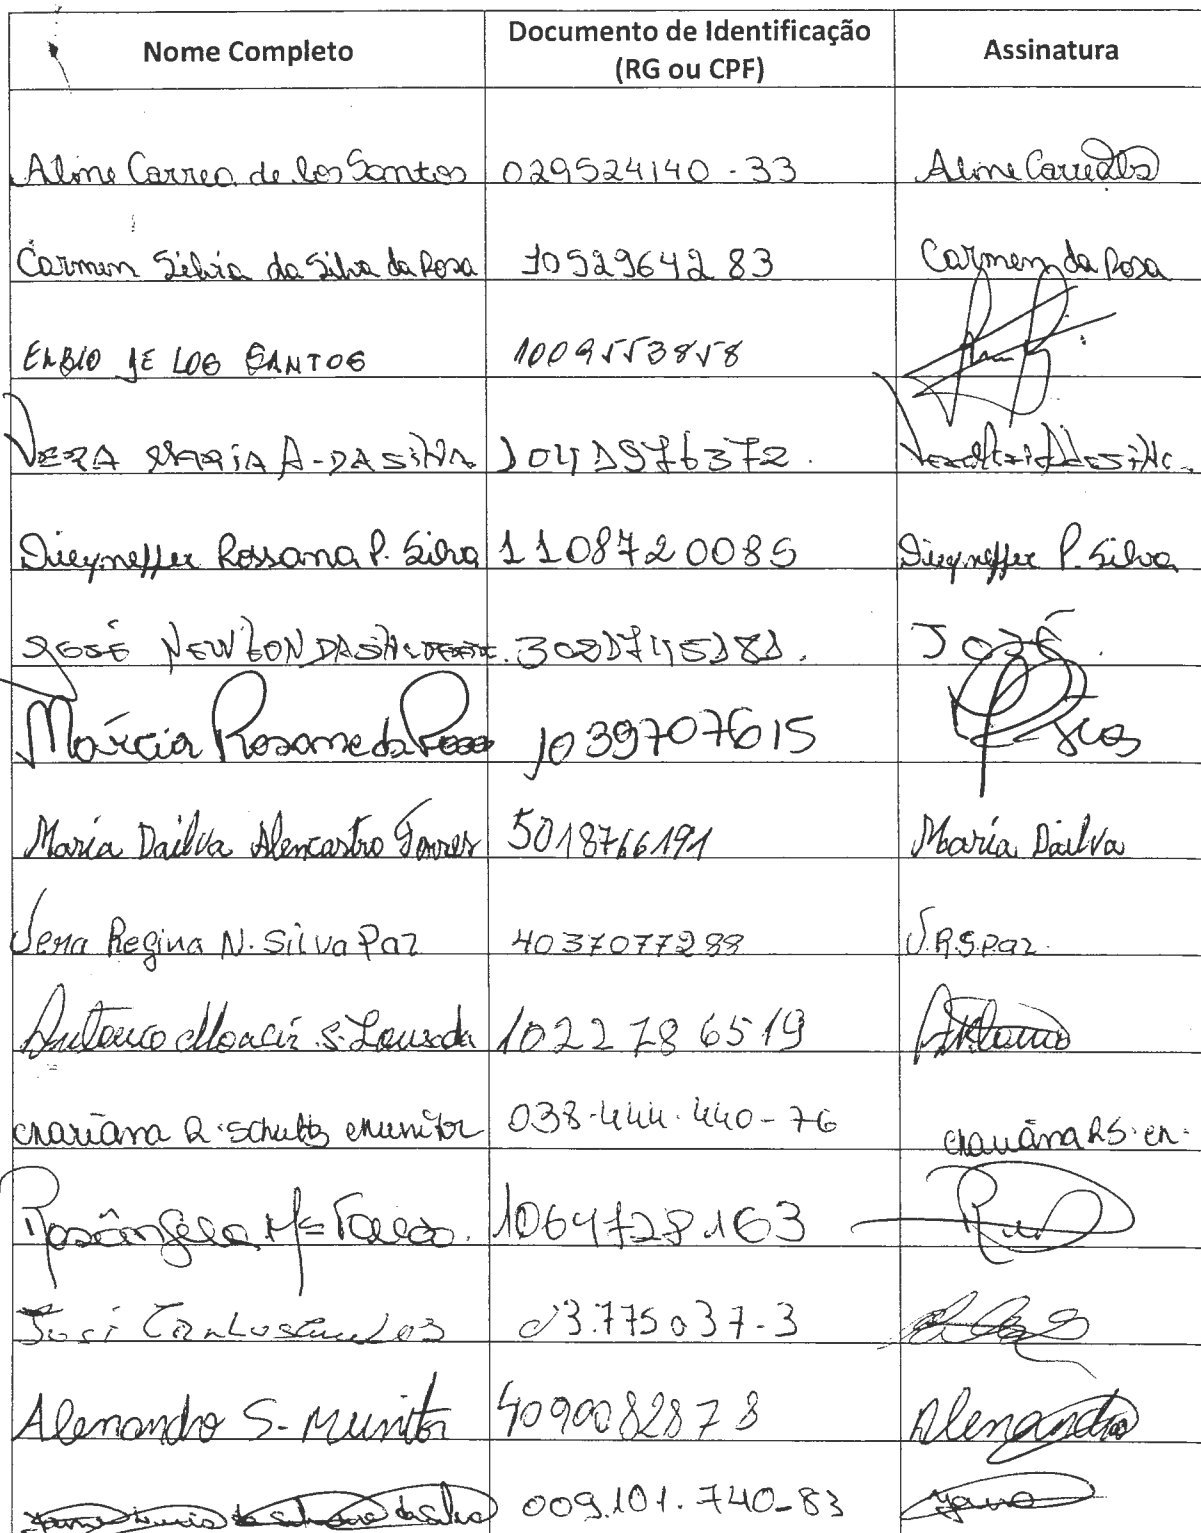 Nome Completo Documento de Identificação (RG ou CPF) Assinatura
Aline Correa de los Santos 029524140-33 Aline
Carmen Silvia da Silva da Rosa 1052964283 Carmen da Rosa
ELBIO DE LOS SANTOS 1009553858
VERA MARIA A. DA SILVA 1041976372.
Dieyneffer Rossana P. Silva 1108720085 Dieyneffer P. Silva
JOSÉ NEWTON DA SILVA JOSÉ
Márcia Rosane da Rosa 1039707615
Maria Dailva Alencastro Torres 5018766191 Maria Dailva
Vera Regina N. Silva Paz 4037077288 V.R.S.Paz.
Antonio Moacir S. Louzada 1022786519 Antonio
Mariana R. Schultz Munitor 038.444.440-76 Mariana R S. M.
Rosângela Mª 1064728163
José Carlos 3.775037-3
Alexandro S. Munitor 4090082878 Alexandro
009.101.740-83